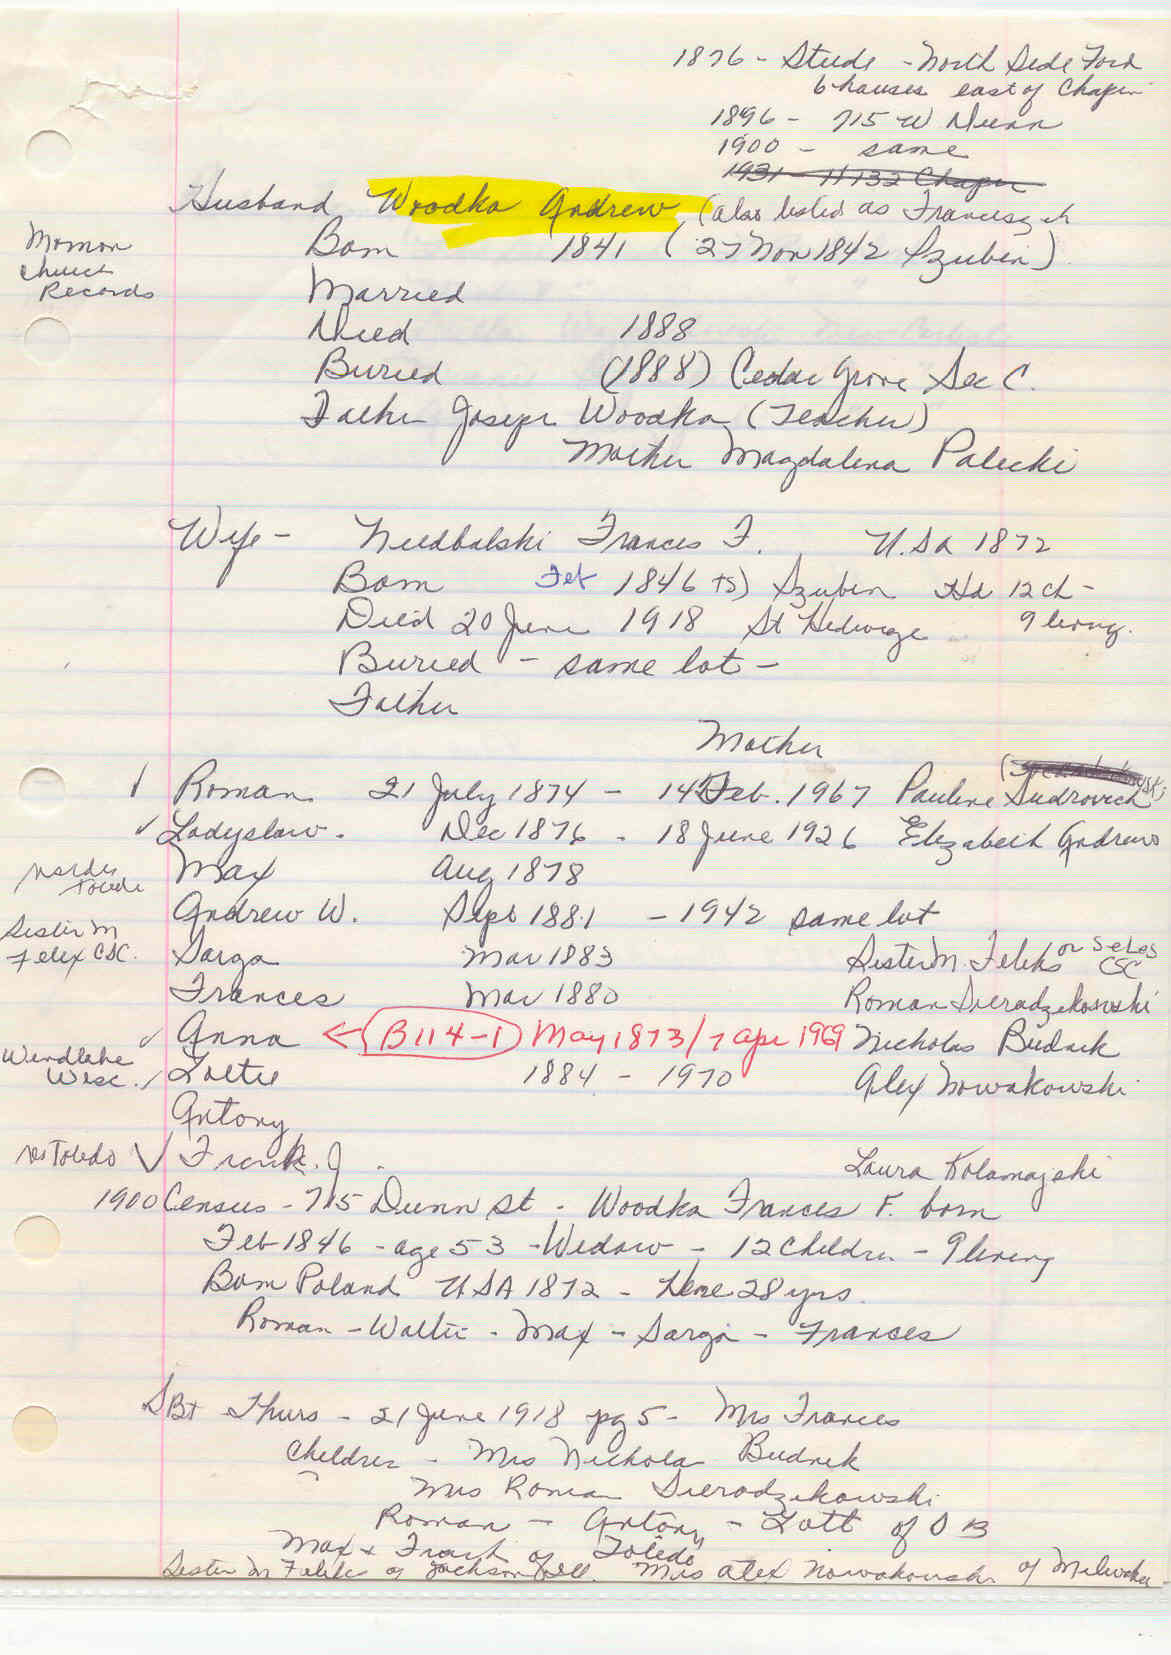 1876 - Stude - North Side Ford
6 houses east of Chapin
1896 - 715 W Dunn
1900 - same
1931 - 1132 Chapin
Husband Woodka Andrew (also listed as Franciszek
Mormon Church Records
Born 1841 (27 Nov 1842 Szubin)
Married
Died 1888
Buried (1888) Cedar Grove Sec C.
Father Joseph Woodka (Teacher)
Mother Magdalena Palecki
Wife - Niedbalski Frances F. USA 1872
Born Feb 1846 Szubin Had 12 ch -
Died 20 June 1918 St Hedwige 9 living.
Buried - same lot -
Father
Mother
Roman 21 July 1874 - 14 Feb. 1967 Pauline Sudrovech
Ladyslaw. Dec 1876 - 18 June 1926 Elizabeth Andrews
Max Aug 1878
Andrew W. Sept 1881 - 1942 same lot
Sister M Felix CSC. Sarga Mar 1883 Sister M. Feliks or SeLas CSC
Frances Mar 1880 Roman Sieradzikowski
Anna ← B114-1 May 1873/7 Apr 1969 Nicholas Budnik
Windlake Wisc. Lottie 1884 - 1970 Alex Nowakowski
Antony
Toledo Frank. J. Laura Kolamajski
1900 Census - 715 Dunn St - Woodka Frances F. born
Feb 1846 - age 53 - Widow - 12 Children - 9 living
Born Poland USA 1872 - Here 28 yrs.
Roman - Walter - Max - Sarga - Frances
SBT Thurs - 21 June 1918 pg 5 - Mrs Frances
Children - Mrs Nichola Budnik
Mrs Roman Sieradzikowski
Roman - Antony - Lott of S B
Max + Frank of Toledo
Sister M Feliks of Jackson Ill. Mrs Alex Nowakowski of Milwaukee